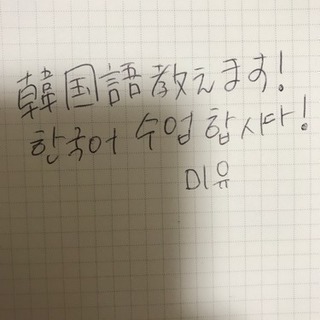 韓国語教えます!
한국어 수업 합시다!
미유